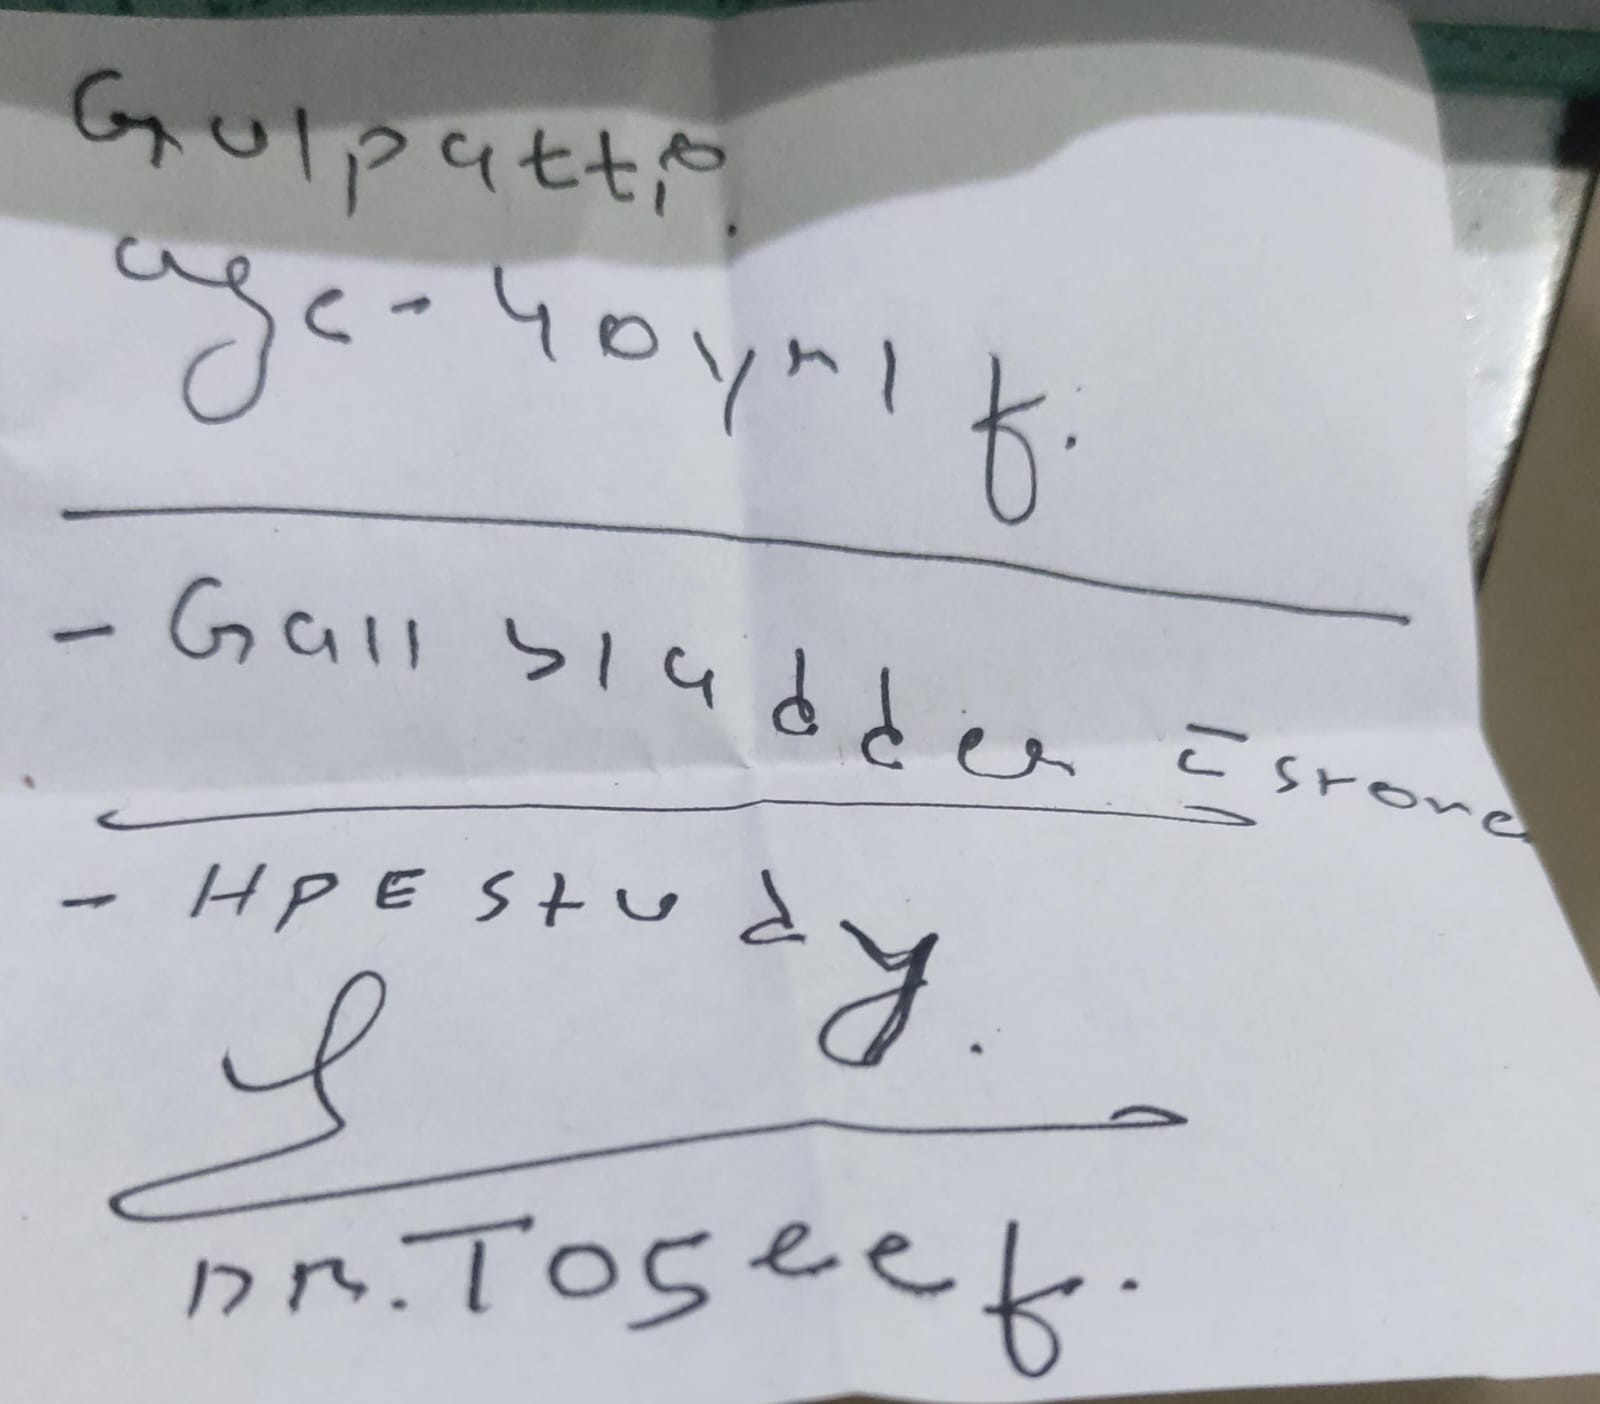 Gulpattio.
age - 40 yrs f.
- Gall bladder c̄ stone
- HPE study.
DR. Toseef.